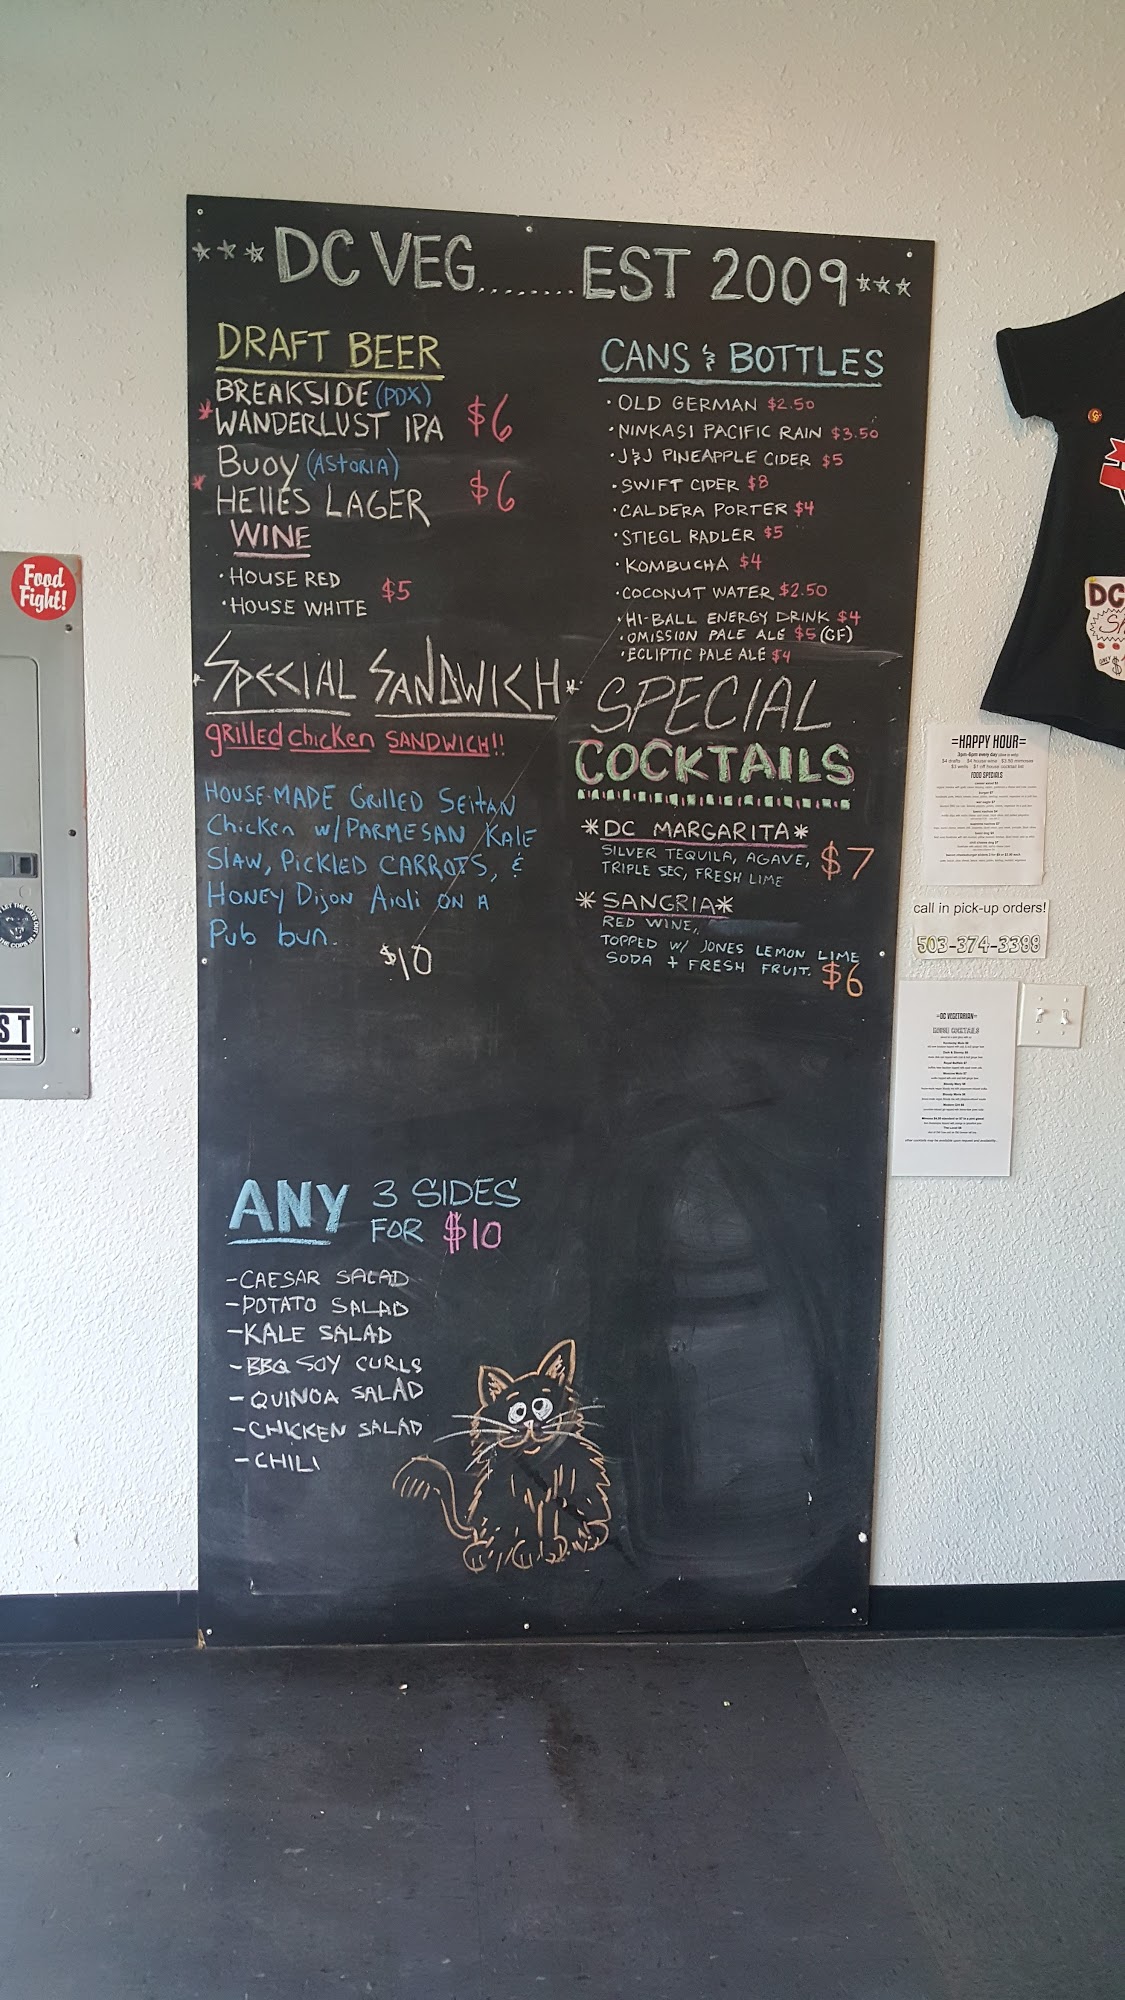 ***DC VEG........EST 2009***
DRAFT BEER
BREAKSIDE (PDX)
* WANDERLUST IPA $6
BUOY (ASTORIA)
* HELLES LAGER $6
WINE
• HOUSE RED
• HOUSE WHITE $5
CANS & BOTTLES
• OLD GERMAN $2.50
• NINKASI PACIFIC RAIN $3.50
• J&J PINEAPPLE CIDER $5
• SWIFT CIDER $8
• CALDERA PORTER $4
• STIEGL RADLER $5
• KOMBUCHA $4
• COCONUT WATER $2.50
• HI-BALL ENERGY DRINK $4
• OMISSION PALE ALE $5 (GF)
• ECLIPTIC PALE ALE $4
*SPECIAL SANDWICH*
grilled chicken SANDWICH!!
HOUSE-MADE Grilled Seitan
Chicken w/PARMESAN Kale
Slaw, Pickled CARROTS, &
Honey Dijon Aioli on a
Pub bun.
$10
SPECIAL
COCKTAILS
*DC MARGARITA*
SILVER TEQUILA, AGAVE,
TRIPLE SEC, FRESH LIME $7
*SANGRIA*
RED WINE,
TOPPED W/ JONES LEMON LIME
SODA + FRESH FRUIT. $6
ANY 3 SIDES
FOR $10
- CAESAR SALAD
- POTATO SALAD
- KALE SALAD
- BBQ SOY CURLS
- QUINOA SALAD
- CHICKEN SALAD
- CHILI
Food
Fight!
LET THE CATS OUT
THE COPS IN
ST
DC
=HAPPY HOUR=
3pm-6pm every day
$4 drafts $4 house wine $3.50 mimosas
$3 wells $1 off house cocktail list
FOOD SPECIALS
call in pick-up orders!
503-374-3388
=DC VEGETARIAN=
HOUSE COCKTAILS